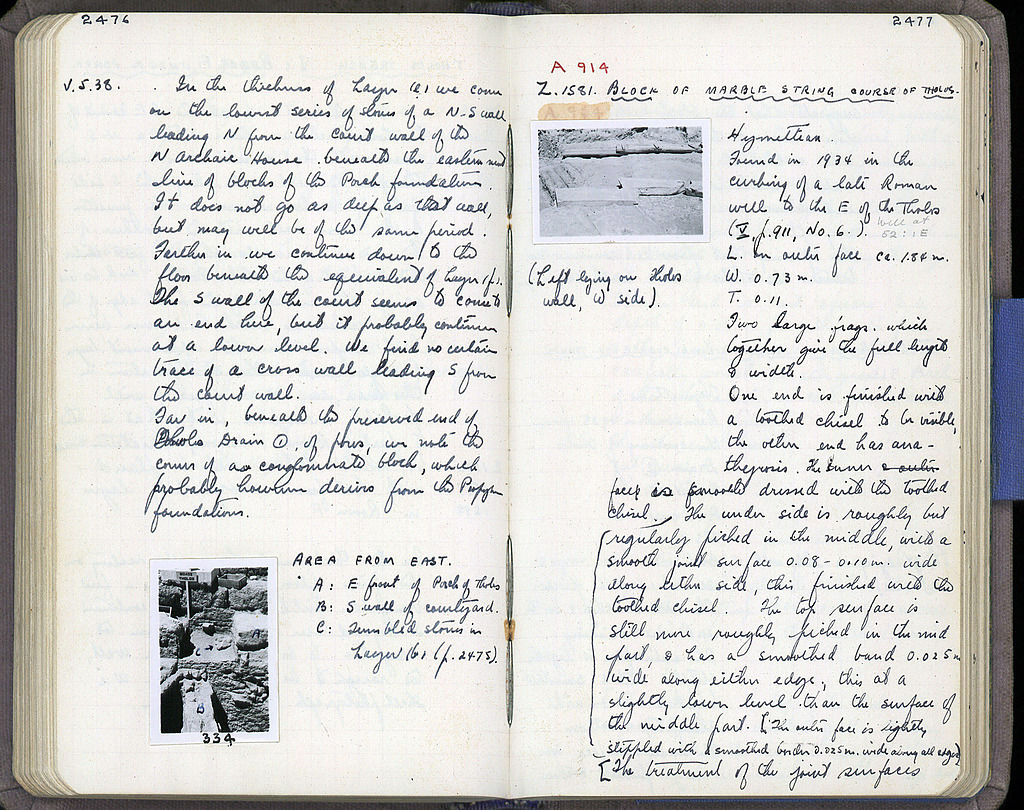 2476
V.5.38. In the thickness of Layer (e) we come
on the lowest series of stones of a N-S wall
leading N from the court wall of the
N Archaic House beneath the eastern most
line of blocks of the Porch foundation.
It does not go as deep as that wall,
but may well be of the same period.
Farther in we continue down to the
floor beneath the equivalent of Layer (f).
The S wall of the court seems to come to
an end here, but it probably continues
at a lower level. We find no certain
trace of a cross wall leading S from
the court wall.
Far in, beneath the preserved end of
Tholos Drain ①, of poros, we note the
corner of a conglomerate block, which
probably however derives from the Propylon
foundations.
AREA FROM EAST.
A: E front of Porch of Tholos
B: S wall of courtyard.
C: Tumbled stones in
Layer (b) (p. 2475).
334
2477
A 914
I.1581. BLOCK OF MARBLE STRING COURSE OF THOLOS.
A 914
Hymettian.
Found in 1934 in the
curbing of a late Roman
well to the E of the Tholos
(V, p. 911, No. 6.). Well at
52:1E
L. on outer face ca. 1.86 m.
(Left lying on Tholos
wall, W side).
W. 0.73 m.
T. 0.11
Two large frags. which
together give the full length
& width.
One end is finished with
a toothed chisel to be visible,
the other end has ana-
thyrosis. The inner & outer
face is smooth dressed with the toothed
chisel. The under side is roughly but
regularly picked in the middle, with a
smooth joint surface 0.08-0.10 m. wide
along either side, this finished with the
toothed chisel. The top surface is
still more roughly picked in the mid
part, & has a smoothed band 0.025 m
wide along either edge, this at a
slightly lower level than the surface of
the middle part. [The outer face is lightly
stippled with a smoothed border 0.025 m. wide along all edges]
[The treatment of the joint surfaces